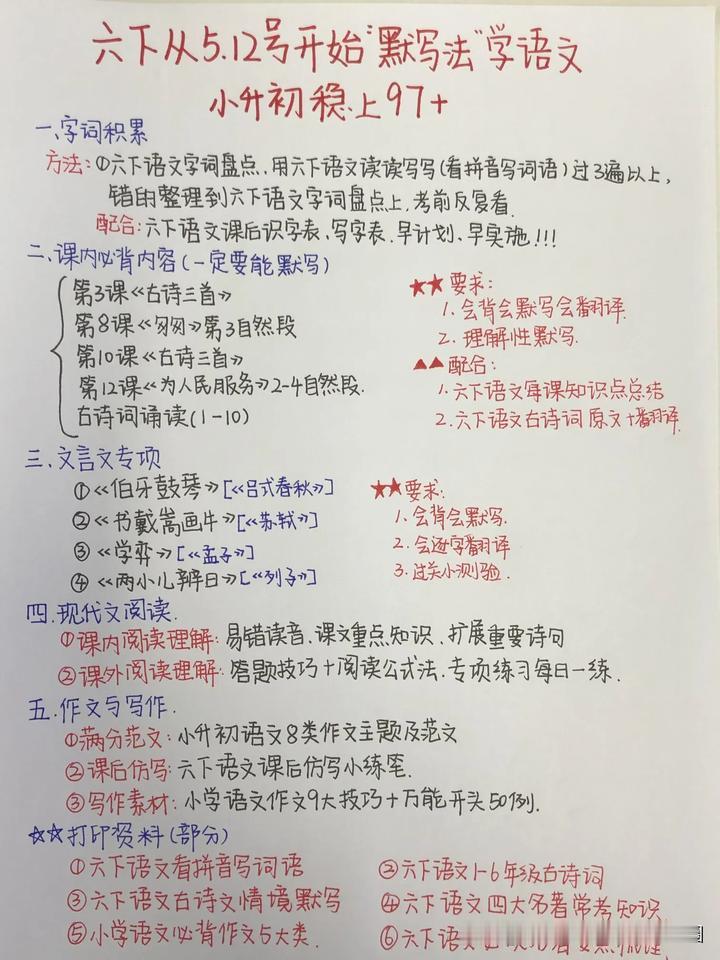 六下从5.12号开始"默写法"学语文
小升初稳上97+
一、字词积累
方法:①六下语文字词盘点,用六下语文读读写写(看拼音写词语)过3遍以上,
错的整理到六下语文字词盘点上,考前反复看.
配合:六下语文课后识字表、写字表.早计划、早实施!!!
二、课内必背内容(一定要能默写)
第3课《古诗三首》
第8课《匆匆》第3自然段
第10课《古诗三首》
第12课《为人民服务》2-4自然段.
古诗词诵读(1-10)
★★要求:
1.会背会默写会翻译.
2.理解性默写.
▲▲配合:
1.六下语文每课知识点总结
2.六下语文古诗词原文+翻译.
三、文言文专项
①《伯牙鼓琴》[《吕式春秋》]
②《书戴嵩画牛》[《苏轼》]
③《学弈》[《孟子》]
④《两小儿辨日》[《列子》]
★★要求:
1.会背会默写.
2.会逐字翻译
3.过关小测验.
四、现代文阅读.
①课内阅读理解:易错读音、课文重点知识、扩展重要诗句
②课外阅读理解:答题技巧+阅读公式法.专项练习每日一练.
五、作文与写作.
①满分范文:小升初语文8类作文主题及范文
②课后仿写:六下语文课后仿写小练笔.
③写作素材:小学语文作文9大技巧+万能开头50例.
☆☆打印资料(部分)
①六下语文看拼音写词语
②六下语文1-6年级古诗词
③六下语文古诗文情境默写
④六下语文四大名著常考知识
⑤小学语文必背作文5大类.
⑥六下语文